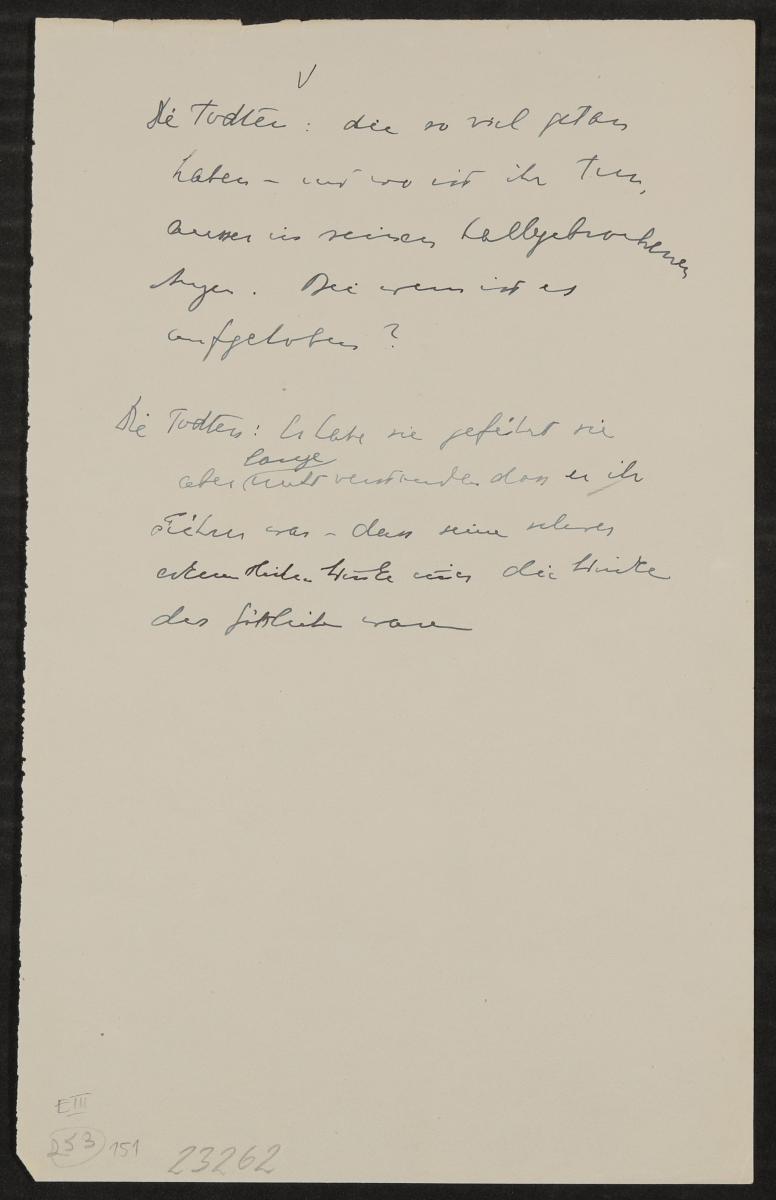 V
Die Todten: die so viel getan
haben – und wo ist ihr Tun,
ausser in seinen halbgebrochenen
Augen. Bei wem ist es
aufgehoben?
Die Todten: Er habe sie geführt sie
lange
aber nicht verstanden dass er ihr
Führer war – dass seine
Winke nur die Winke
des Göttlichen waren
E III
253 151 23262